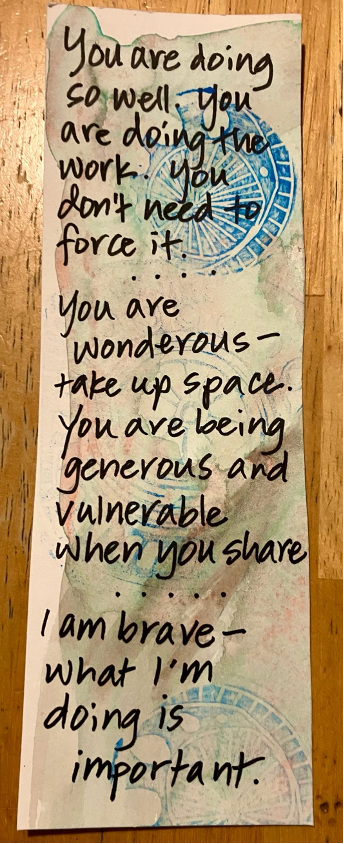 You are doing
so well. You
are doing the
work. You
don't need to
force it.
. . . .
You are
wonderous—
take up space.
You are being
generous and
vulnerable
when you share
. . . . .
I am brave—
what I'm
doing is
important.